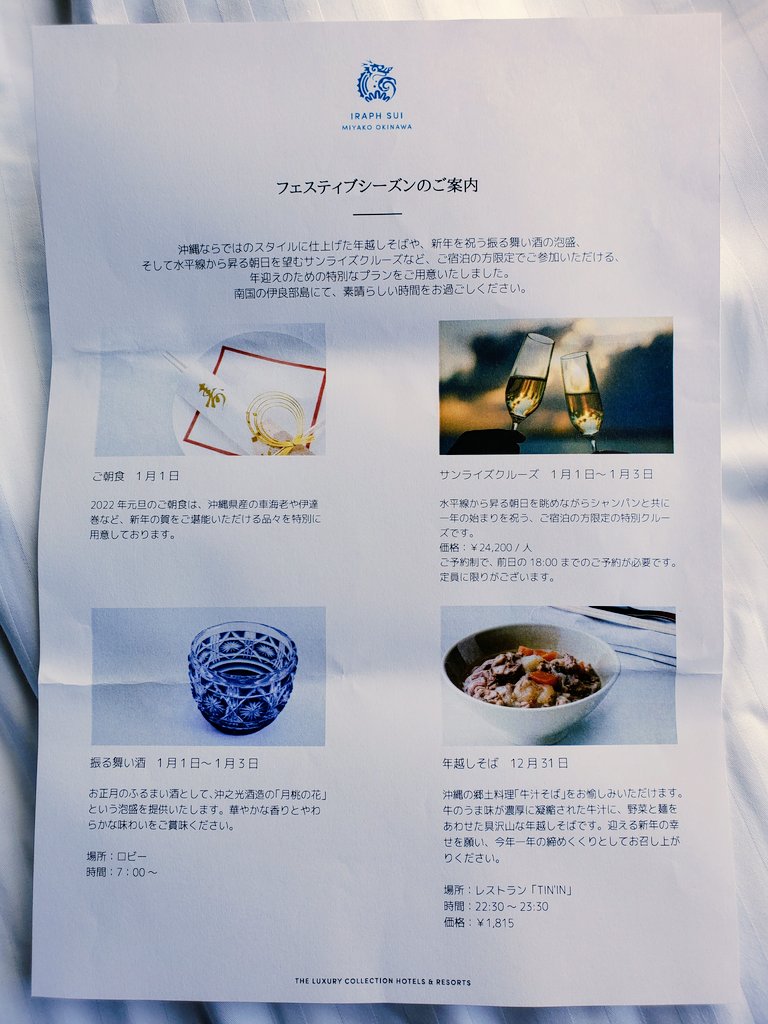 IRAPH SUI
MIYAKO OKINAWA
フェスティブシーズンのご案内
沖縄ならではのスタイルに仕上げた年越しそばや、新年を祝う振る舞い酒の泡盛、
そして水平線から昇る朝日を望むサンライズクルーズなど、ご宿泊の方限定でご参加いただける、
年迎えのための特別なプランをご用意いたしました。
南国の伊良部島にて、素晴らしい時間をお過ごしください。
寿
ご朝食 1月1日
2022年元旦のご朝食は、沖縄県産の車海老や伊達
巻など、新年の賀をご堪能いただける品々を特別に
用意しております。
サンライズクルーズ 1月1日～1月3日
水平線から昇る朝日を眺めながらシャンパンと共に
一年の始まりを祝う、ご宿泊の方限定の特別クルー
ズです。
価格：￥24,200 / 人
ご予約制で、前日の 18:00 までのご予約が必要です。
定員に限りがございます。
振る舞い酒 1月1日～1月3日
お正月のふるまい酒として、沖之光酒造の「月桃の花」
という泡盛を提供いたします。華やかな香りとやわ
らかな味わいをご賞味ください。
場所：ロビー
時間：7：00～
年越しそば 12月31日
沖縄の郷土料理「牛汁そば」をお愉しみいただけます。
牛のうま味が濃厚に凝縮された牛汁に、野菜と麺を
あわせた具沢山な年越しそばです。迎える新年の幸
せを願い、今年一年の締めくくりとしてお召し上が
りください。
場所：レストラン「TIN'IN」
時間：22:30～23:30
価格：￥1,815
THE LUXURY COLLECTION HOTELS & RESORTS